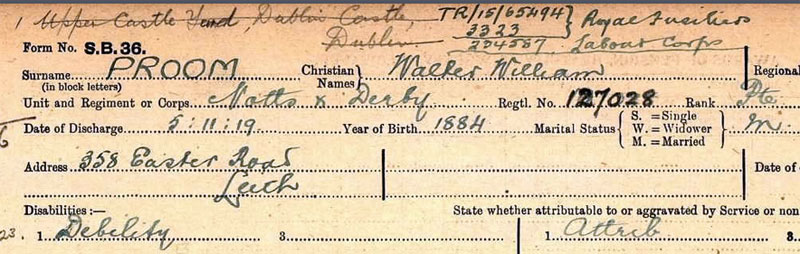 1 Upper Castle Yard, Dublin Castle, Dublin
TR/15/65494 } Royal Fusiliers
3323
204587 Labour Corps
Form No. S.B. 36.
Surname PROOM (in block letters) Christian Names } Walter William Regional
Unit and Regiment or Corps Notts & Derby Regtl. No. 127028 Rank Pte
Date of Discharge 5:11:19. Year of Birth 1884 Marital Status { S. = Single W. = Widower M. = Married } M.
Address 358 Easter Road Date of
Leith
Disabilities :— State whether attributable to or aggravated by Service or non
23. 1 Debility 3. 1 Attrib 3.